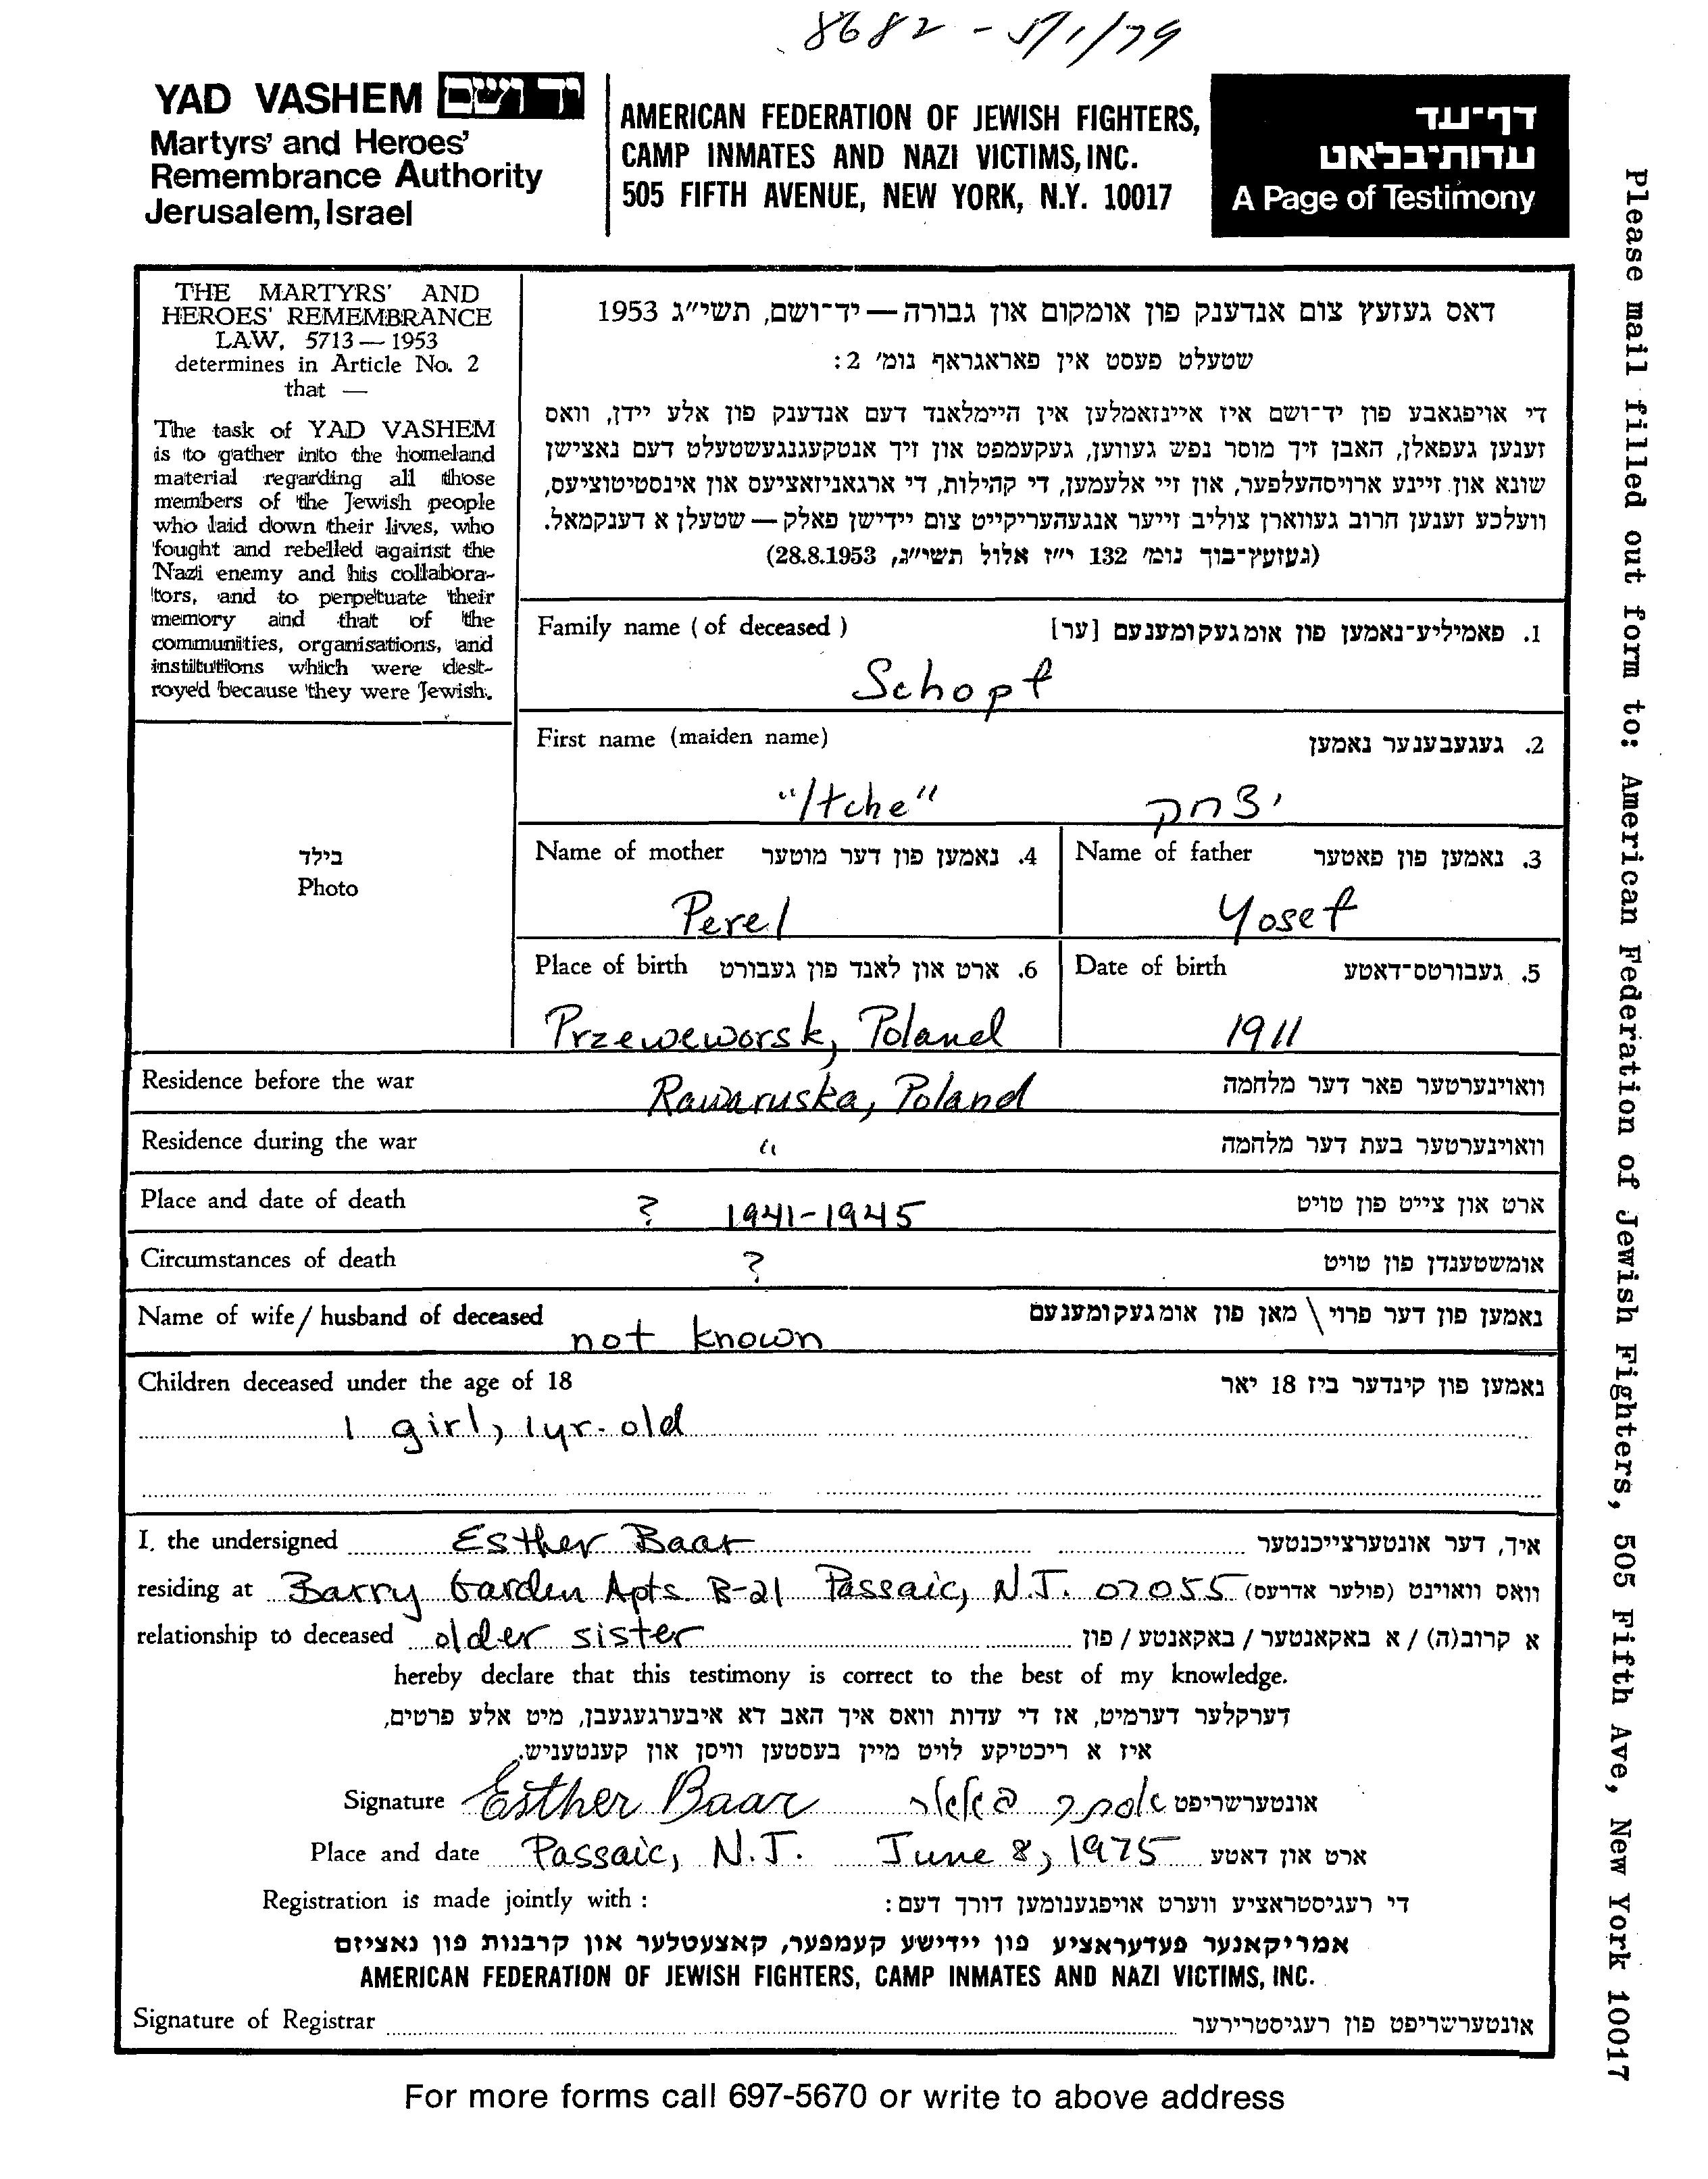 8682 - 5/1/79
YAD VASHEM יד ושם
Martyrs' and Heroes'
Remembrance Authority
Jerusalem, Israel
AMERICAN FEDERATION OF JEWISH FIGHTERS,
CAMP INMATES AND NAZI VICTIMS, INC.
505 FIFTH AVENUE, NEW YORK, N.Y. 10017
דף-עד
עדות-בלאט
A Page of Testimony
Please mail filled out form to: American Federation of Jewish Fighters, 505 Fifth Ave, New York 10017
THE MARTYRS' AND
HEROES' REMEMBRANCE
LAW, 5713 — 1953
determines in Article No. 2
that —
The task of YAD VASHEM
is to gather into the homeland
material regarding all those
members of the Jewish people
who laid down their lives, who
fought and rebelled against the
Nazi enemy and his collabora-
tors, and to perpetuate their
memory and that of the
communities, organisations, and
institutions which were dest-
royed because they were Jewish.
דאס געזעץ צום אנדענק פון אומקום און גבורה — יד-ושם, תשי"ג 1953
שטעלט פעסט אין פאראגראף נומ' 2:
די אויפגאבע פון יד-ושם איז איינזאמלען אין היימלאנד דעם אנדענק פון אלע יידן, וואס
זענען געפאלן, האבן זיך מוסר נפש געווען, געקעמפט און זיך אנטקעגנגעשטעלט דעם נאצישן
שונא און זיינע ארויסהעלפער, און זיי אלעמען, די קהילות, די ארגאניזאציעס און אינסטיטוציעס,
וועלכע זענען חרוב געווארן צוליב זייער אנגעהעריקייט צום יידישן פאלק — שטעלן א דענקמאל.
(געזעץ-בוך נומ' 132 י"ז אלול תשי"ג, 28.8.1953)
Family name (of deceased) 1. פאמיליע-נאמען פון אומגעקומענעם [ער]
Schopf
First name (maiden name) 2. געגעבענער נאמען
"Itche" יצחק
בילד
Photo
Name of mother 4. נאמען פון דער מוטער
Perel
Name of father 3. נאמען פון פאטער
Yosef
Place of birth 6. ארט און לאנד פון געבורט
Przeweworsk, Poland
Date of birth 5. געבורטס-דאטע
1911
Residence before the war Rawaruska, Poland וואוינערטער פאר דער מלחמה
Residence during the war " וואוינערטער בעת דער מלחמה
Place and date of death ? 1941-1945 ארט און צייט פון טויט
Circumstances of death ? אומשטענדן פון טויט
Name of wife / husband of deceased not known נאמען פון דער פרוי \ מאן פון אומגעקומענעם
Children deceased under the age of 18 נאמען פון קינדער ביז 18 יאר
1 girl, 1 yr. old
I, the undersigned Esther Baar איך, דער אונטערצייכנטער
residing at Barry Garden Apts. B-21 Passaic, N.J. 07055 וואס וואוינט (פולער אדרעס)
relationship to deceased older sister א קרוב(ה) / א באקאנטער / באקאנטע / פון
hereby declare that this testimony is correct to the best of my knowledge.
דערקלער דערמיט, אז די עדות וואס איך האב דא איבערגעגעבן, מיט אלע פרטים,
איז א ריכטיקע לויט מיין בעסטען וויסן און קענטעניש.
Signature Esther Baar אסתר באאר אונטערשריפט
Place and date Passaic, N.J. June 8, 1975 ארט און דאטע
Registration is made jointly with : די רעגיסטראציע ווערט אויפגענומען דורך דעם:
אמריקאנער פעדעראציע פון יידישע קעמפער, קאצעטלער און קרבנות פון נאציזם
AMERICAN FEDERATION OF JEWISH FIGHTERS, CAMP INMATES AND NAZI VICTIMS, INC.
Signature of Registrar אונטערשריפט פון רעגיסטרירער
For more forms call 697-5670 or write to above address